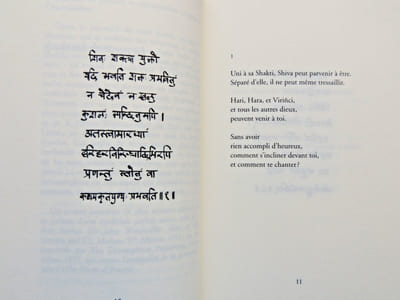 शिवः शक्त्या युक्तो
यदि भवति शक्तः प्रभवितुं
न चेदेवं न खलु
कुशलः स्पन्दितुमपि।
अतस्त्वामाराध्यां
हरिहरविरिञ्चादिभिरपि
प्रणन्तुं स्तोतुं वा
कथमकृतपुण्यः प्रभवति॥१॥
1
Uni à sa Shakti, Shiva peut parvenir à être.
Séparé d'elle, il ne peut même tressaillir.
Hari, Hara, et Viriñci,
et tous les autres dieux,
peuvent venir à toi.
Sans avoir
rien accompli d'heureux,
comment s'incliner devant toi,
et comment te chanter?
11